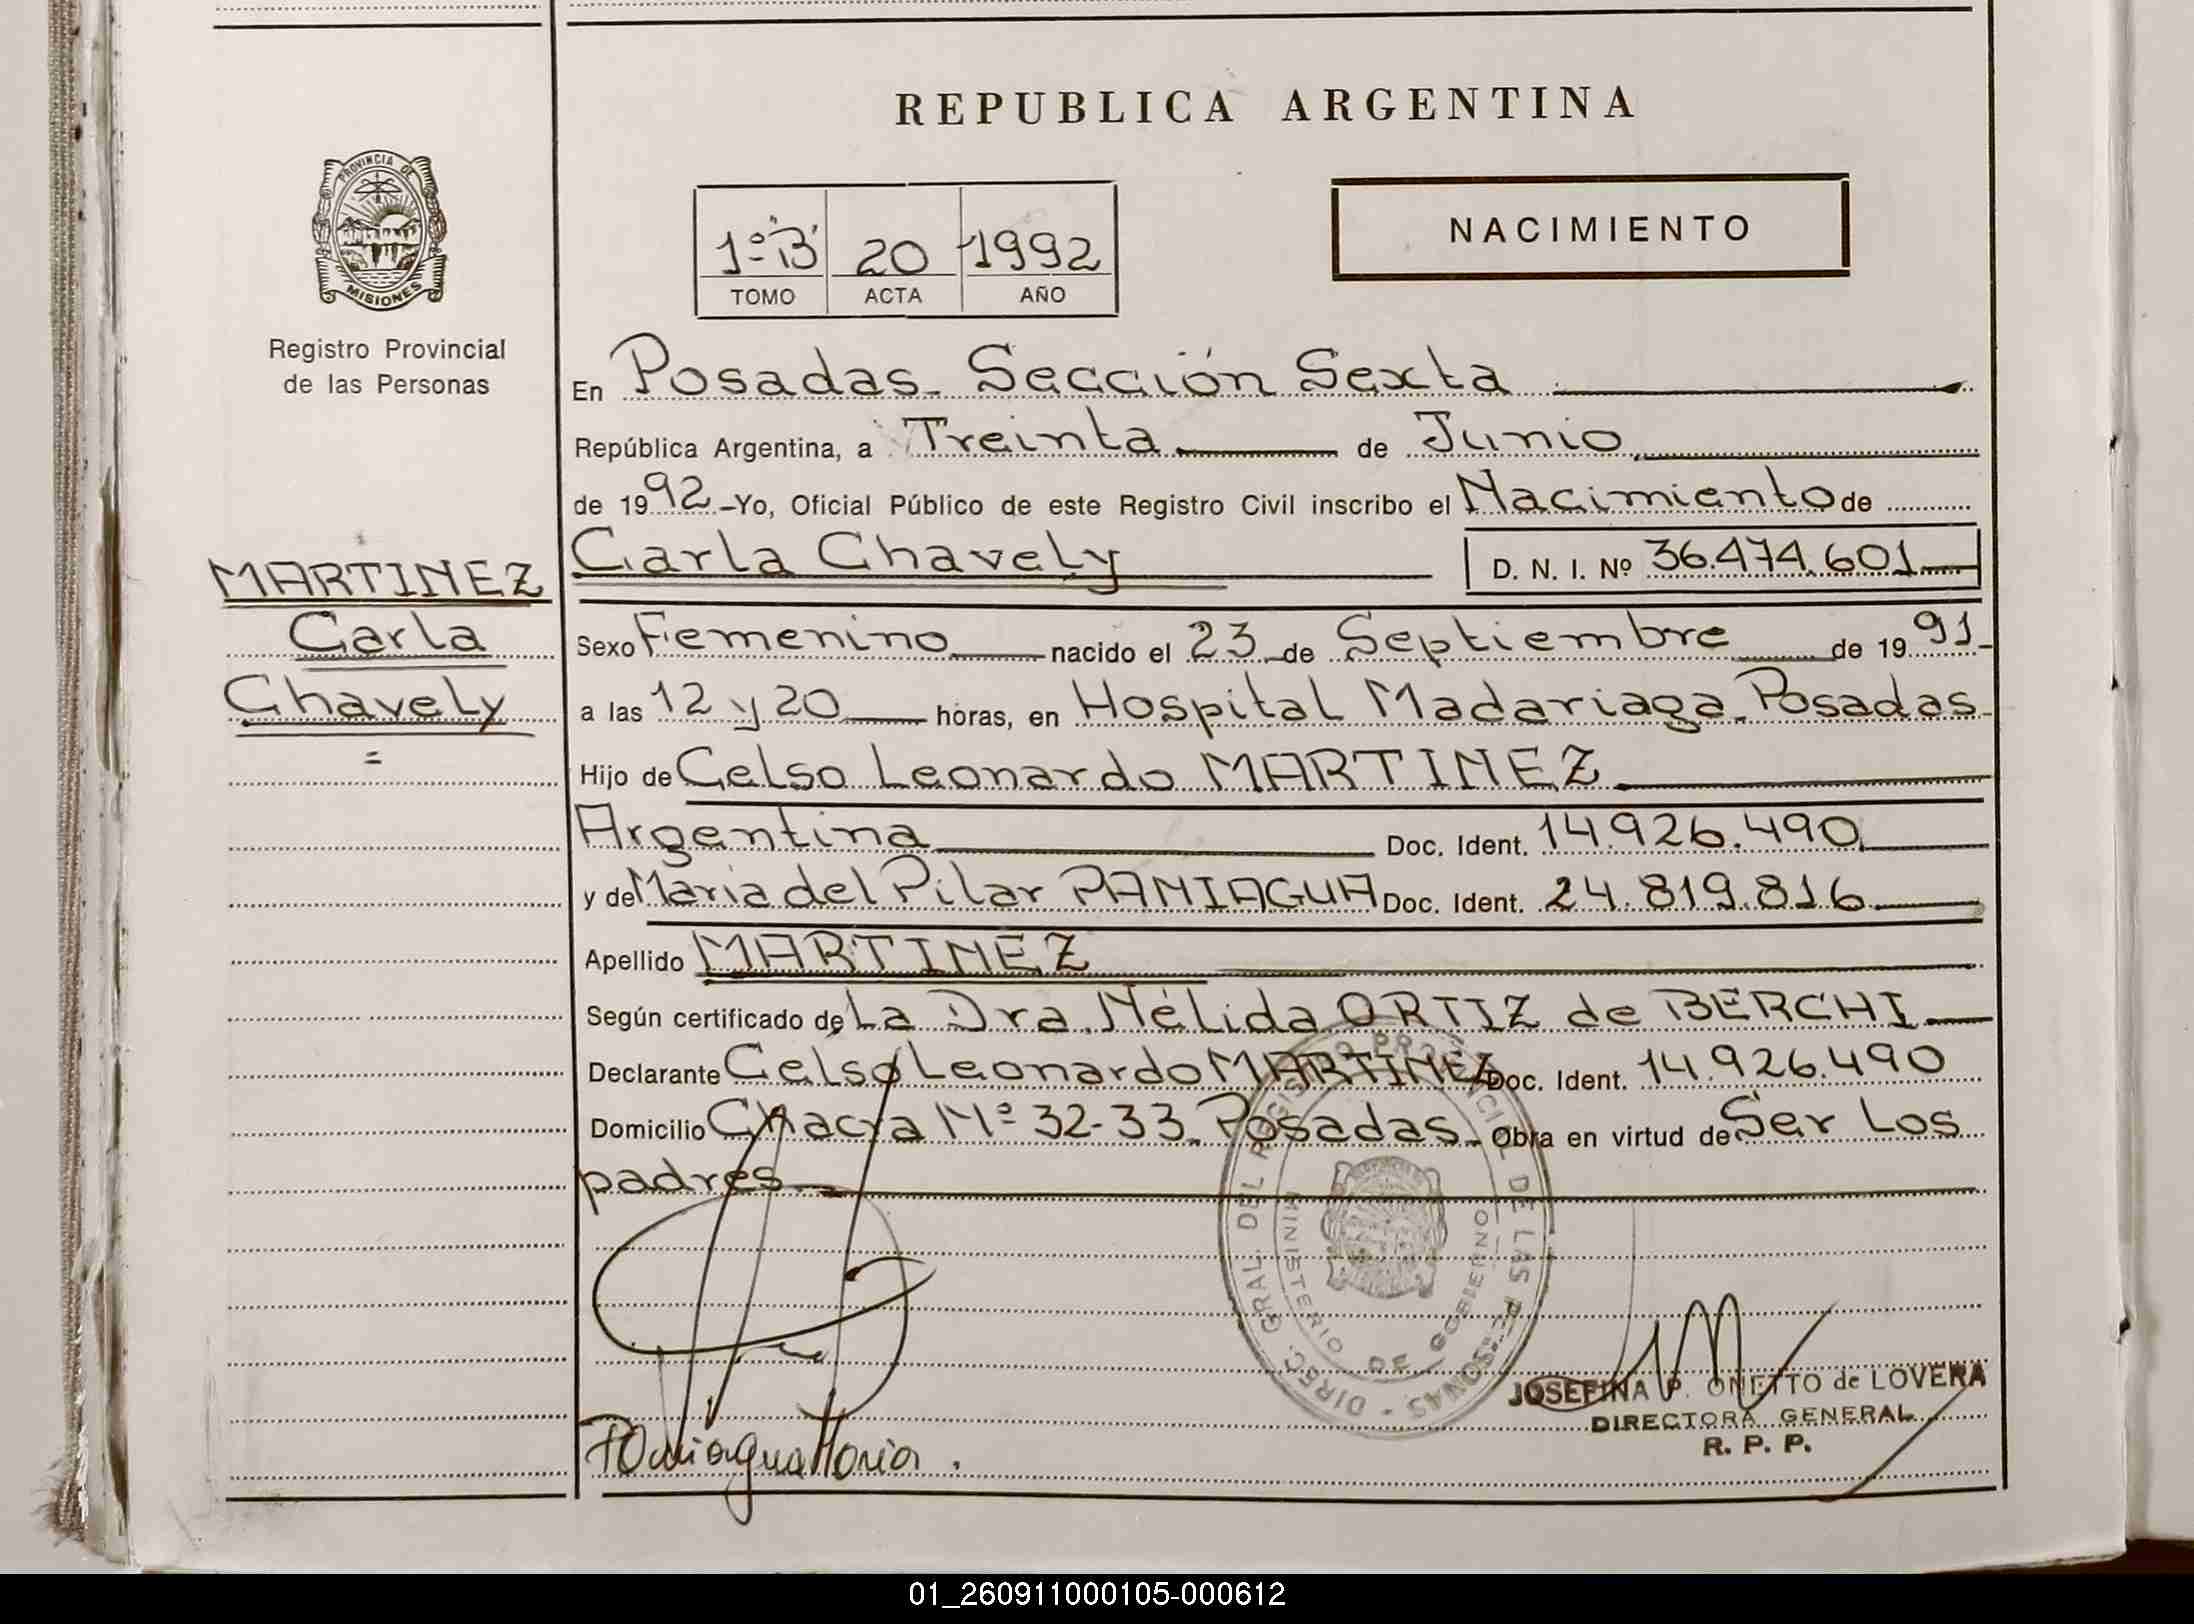 REPUBLICA ARGENTINA
PROVINCIA DE
MISIONES
Registro Provincial
de las Personas
1º "B" 20 1992
TOMO ACTA AÑO
NACIMIENTO
En Posadas - Sección Sexta
República Argentina, a Treinta de Junio
de 1992 - Yo, Oficial Público de este Registro Civil inscribo el Nacimiento de
Carla Chavely D. N. I. Nº 36.474.601
MARTINEZ
Carla
Chavely
=
Sexo Femenino nacido el 23 de Septiembre de 1991 -
a las 12 y 20 horas, en Hospital Madariaga - Posadas -
Hijo de Celso Leonardo MARTINEZ
Argentina Doc. Ident. 14.926.490
y de Maria del Pilar PANIAGUA Doc. Ident. 24.819.816
Apellido MARTINEZ
Según certificado de La Dra. Nélida ORTIZ de BERCHI
Declarante Celso Leonardo MARTINEZ Doc. Ident. 14.926.490
Domicilio Chacra Nº 32-33 - Posadas - Obra en virtud de Ser Los
padres
DIREC. GRAL. DEL REGISTRO PROVINCIAL DE LAS PERSONAS -
MINISTERIO DE GOBIERNO
JOSEFINA P. ONETTO de LOVERA
DIRECTORA GENERAL
R. P. P.
Paniagua Maria .
01_260911000105-000612